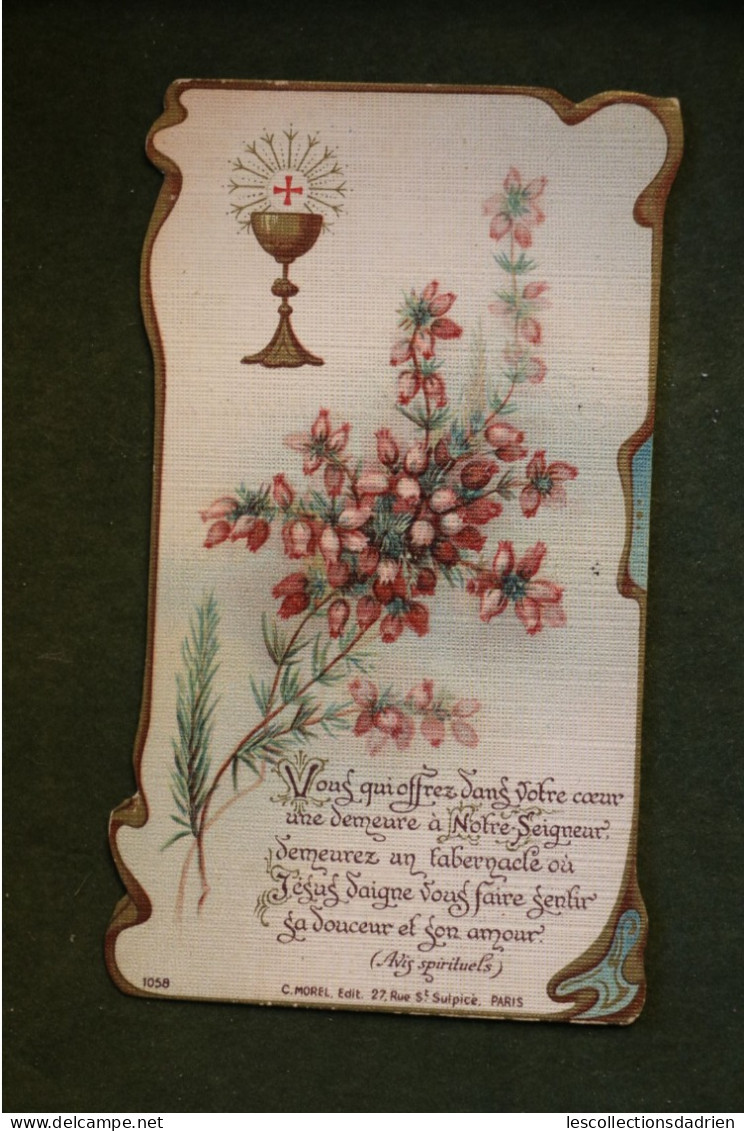 Vous qui offrez dans votre cœur
une demeure à Notre-Seigneur,
demeurez un tabernacle où
Jésus daigne vous faire sentir
sa douceur et son amour.
(Avis spirituels)
1058
C. MOREL, Edit. 27, Rue St Sulpice, PARIS
lescollectionsdadrien